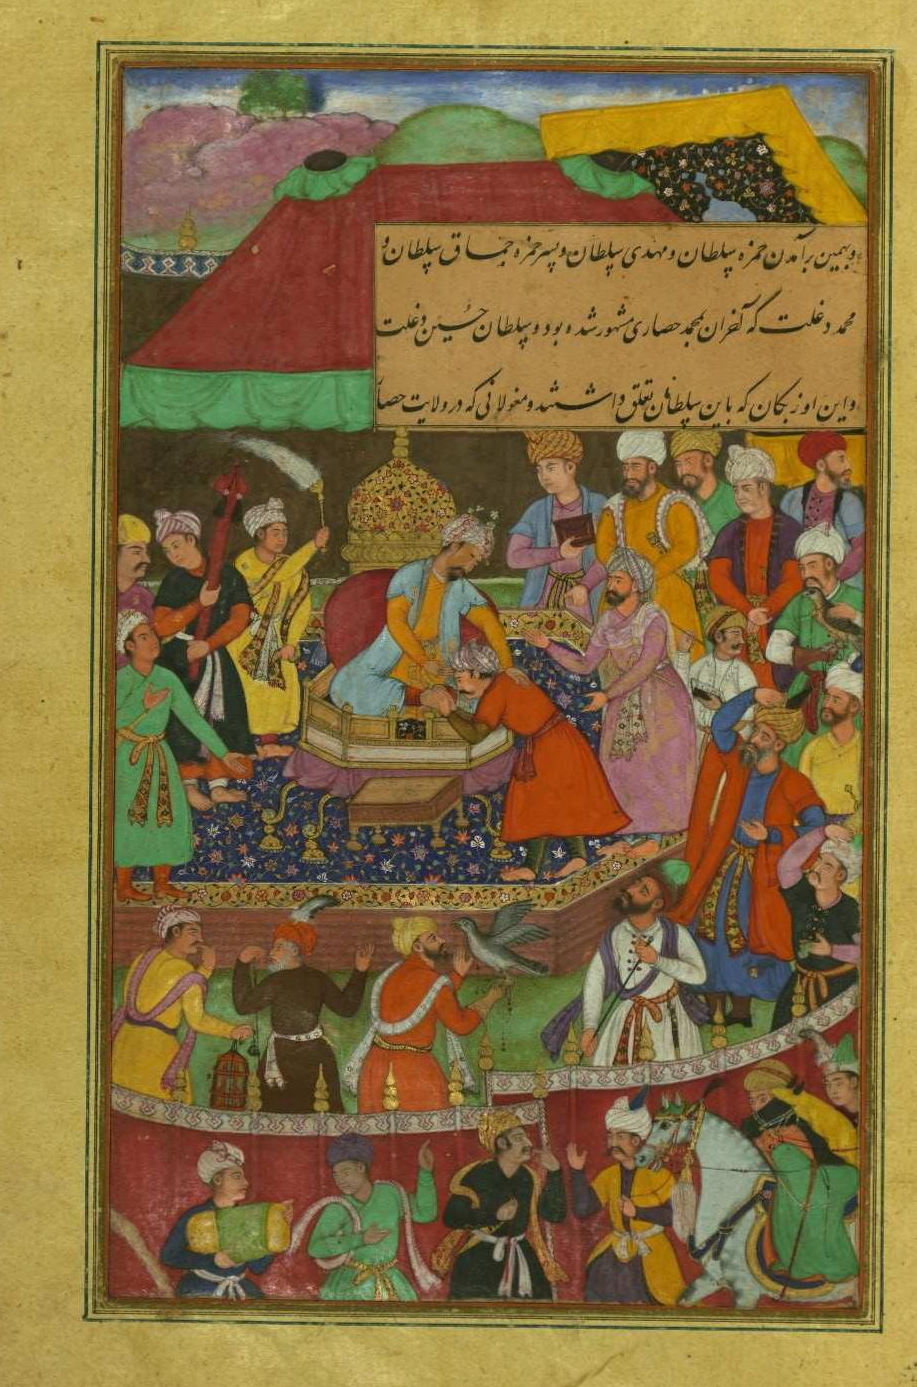 و بهمین برآمدن حمزه سلطان و مهدی سلطان و پسر حمزه جماق سلطان و
محمد دغلت که آخران بمجد حصاری مشهور شده بود و سلطان حسین دغلت
و این اوزبکان که باین سلطانان تعلق داشتند و مغولانی که در ولایت حصا